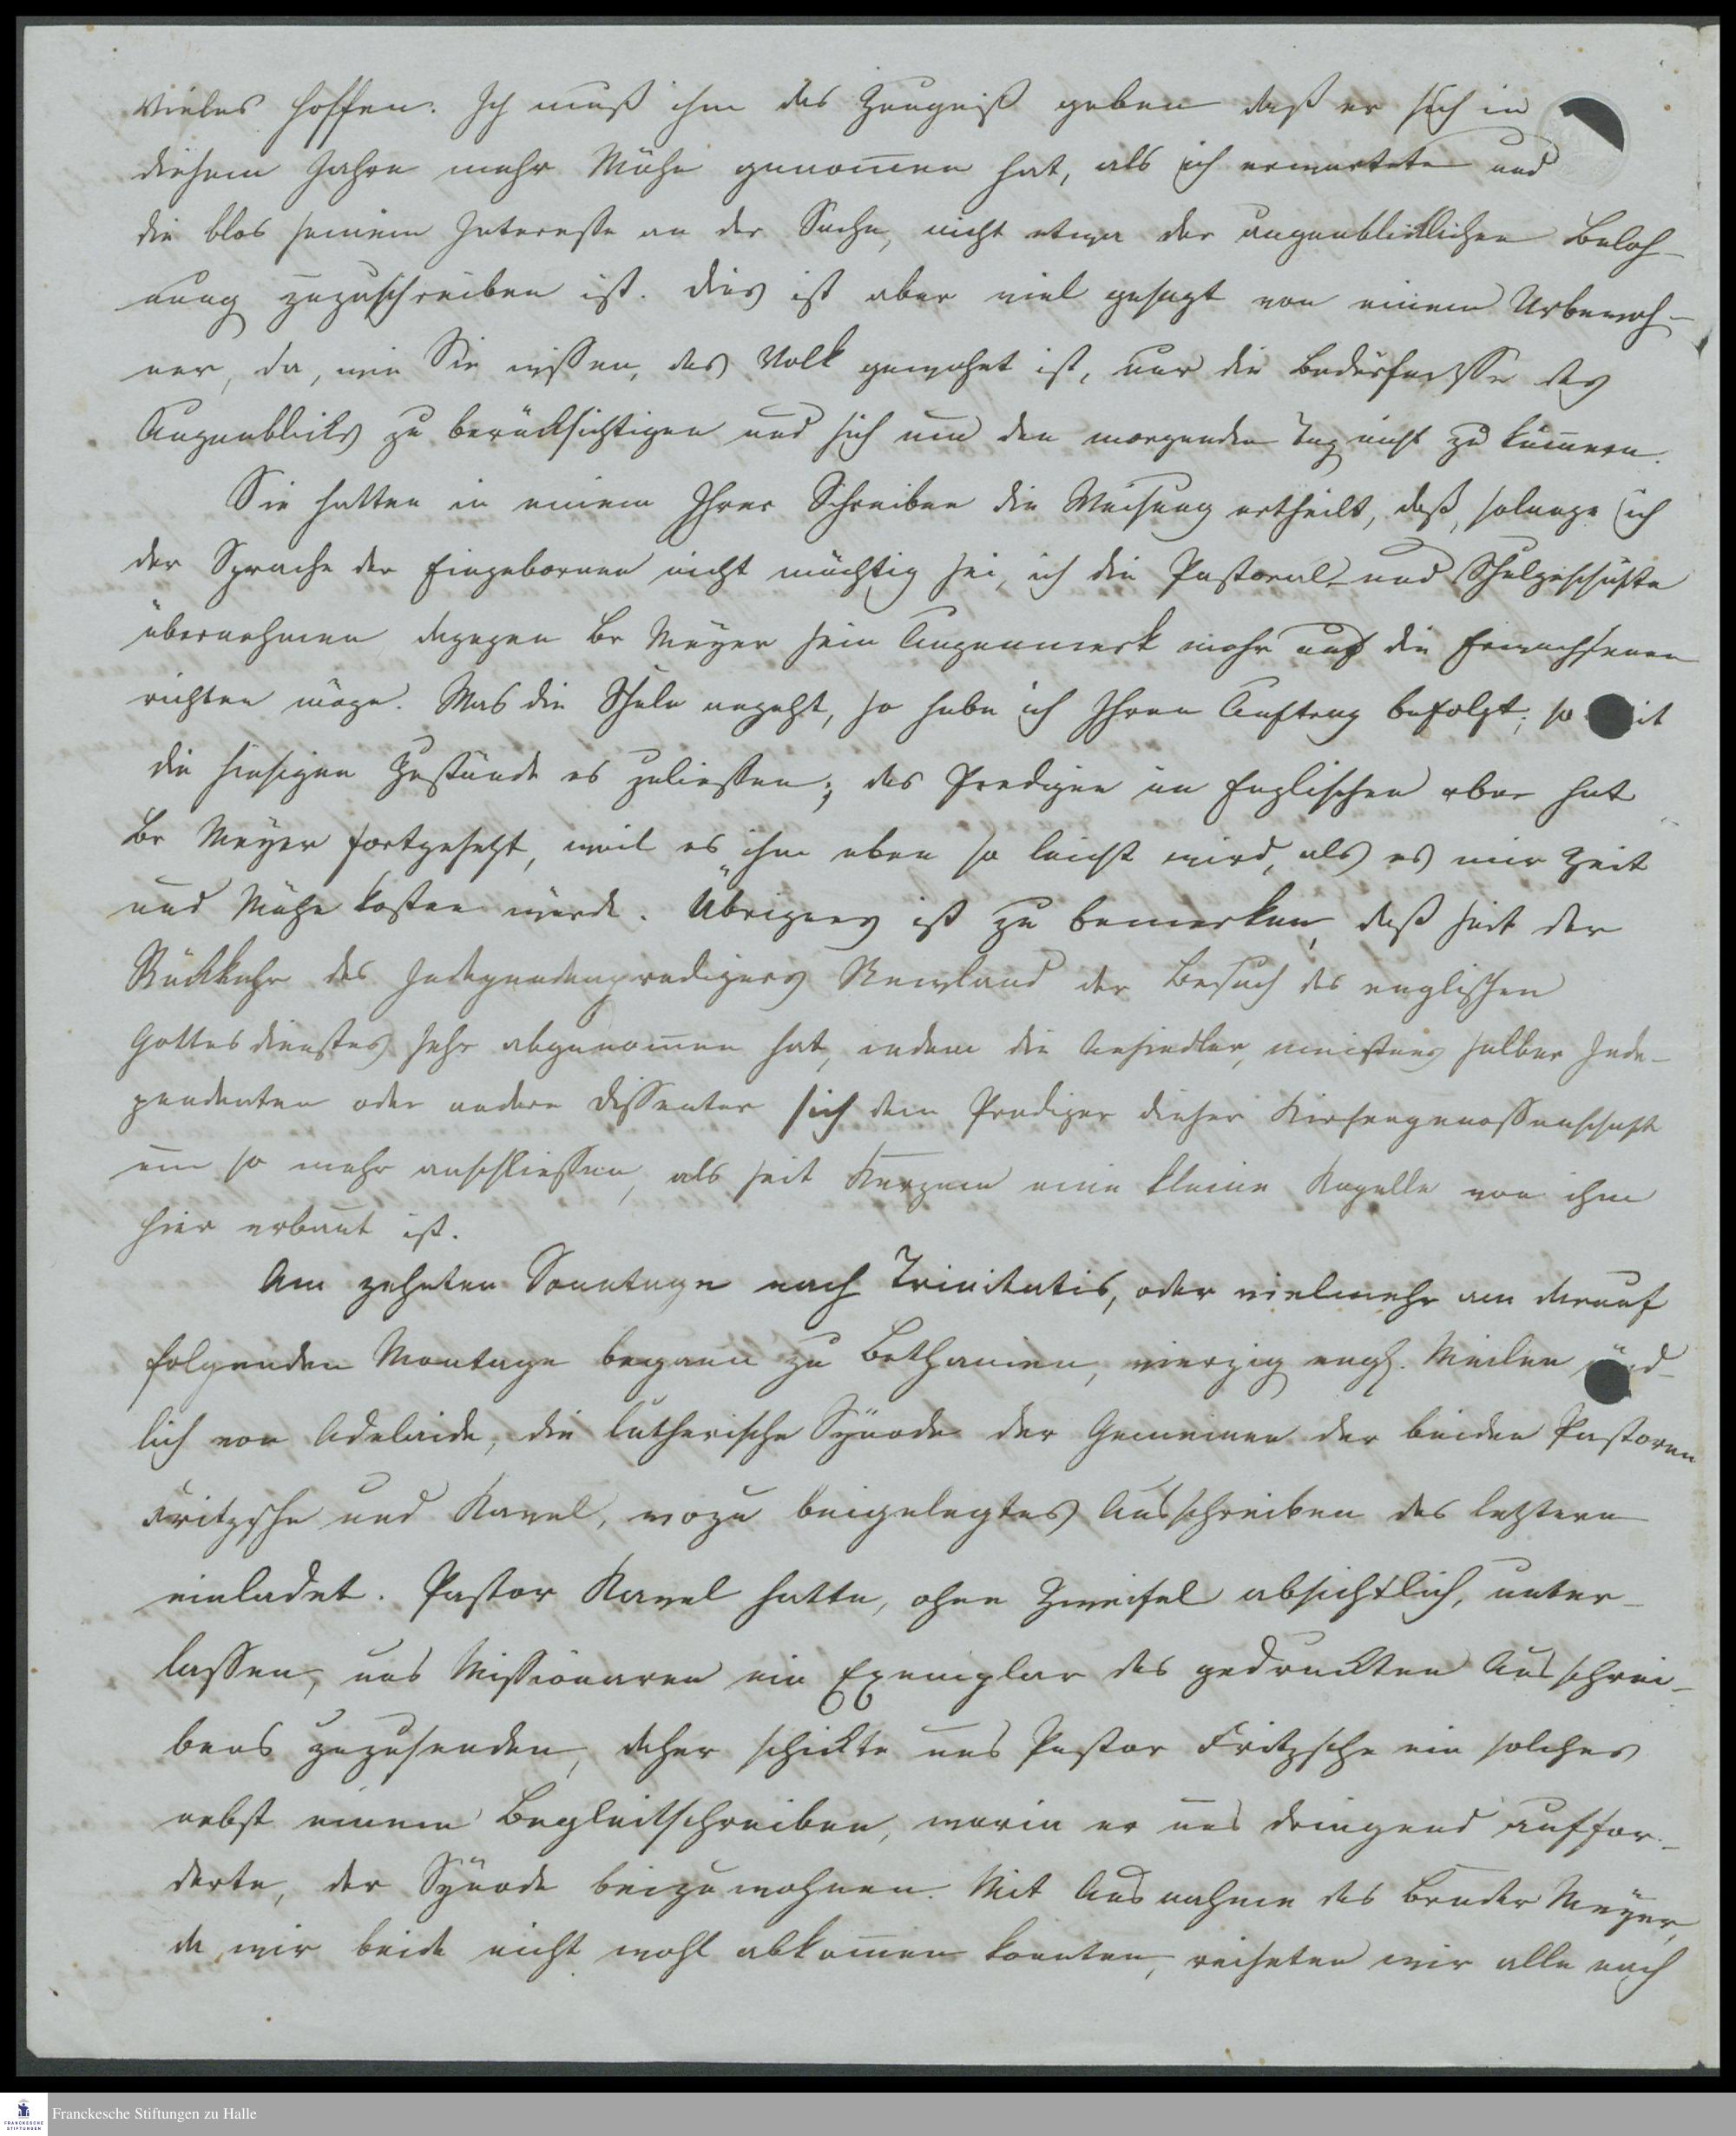 Vieles hoffen. Ich muß ihm das Zeugniß geben daß er sich in
diesem Jahre mehr Mühe genom̅en hat, als ich erwartete und
die blos seinem Interesse an der Sache, nicht etwa der augenblicklichen Beloh-
nung zuzuschreiben ist. Dies ist aber viel gesagt von einem Urbewoh-
ner, da, wie Sie wissen, das Volk gewohnt ist, nur die Bedürfnisse des
Augenblicks zu berücksichtigen und sich um den morgenden Tag nicht zu küm̅ern.
Sie hatten in einem Ihrer Schreiben die Weisung ertheilt, daß, solange ich
der Sprache der Eingebornen nicht mächtig sei, ich die Pastoral- und Schulgeschäfte
übernehmen dagegen Br Meyer sein Augenmerk mehr auf die Erwachsenen
richten möge. Was die Schule angeht, so habe ich Ihren Auftrag befolgt; so it
die hiesigen Zustände es zuliessen; das Predigen im Englischen aber hat
Br Meyer fortgesetzt, weil es ihm eben so leicht wird, als es mir Zeit
und Mühe kosten würde. Übrigens ist zu bemerken, daß seit der
Rückkehr des Independenpredigers Newland der Besuch des englischen
Gottesdienstes sehr abgenom̅en hat, indem die Ansiedler, meistens selber Inde-
pendenten oder andere Dissenter sich dem Prediger dieser Kirchengenossenschaft
um so mehr anschliessen, als seit Kurzem eine kleine Kapelle von ihm
hier erbaut ist.
Am zehnten Sonntage nach Trinitatis, oder vielmehr am darauf
folgenden Montage begann zu Bethanien, vierzig engl. Meilen nörd-
lich von Adelaide, die lutherische Synode der Gemeinen der beiden Pastoren
Fritzsche und Kavel, wozu beigelegtes Ausschreiben des letztern
einladet. Pastor Kavel hatte, ohne Zweifel absichtlich, unter-
lassen, uns Missionaren ein Exemplar des gedruckten Ausschrei-
bens zuzusenden, daher schickte uns Pastor Fritzsche ein solches
nebst einem Begleitschreiben, worin er uns dringend auffor-
derte, der Synode beizuwohnen. Mit Ausnahme des Bruder Meyer,
da wir beide nicht wohl abkom̅en konnten, reiseten wir alle nach
Franckesche Stiftungen zu Halle
FRANCKESCHE
STIFTUNGEN